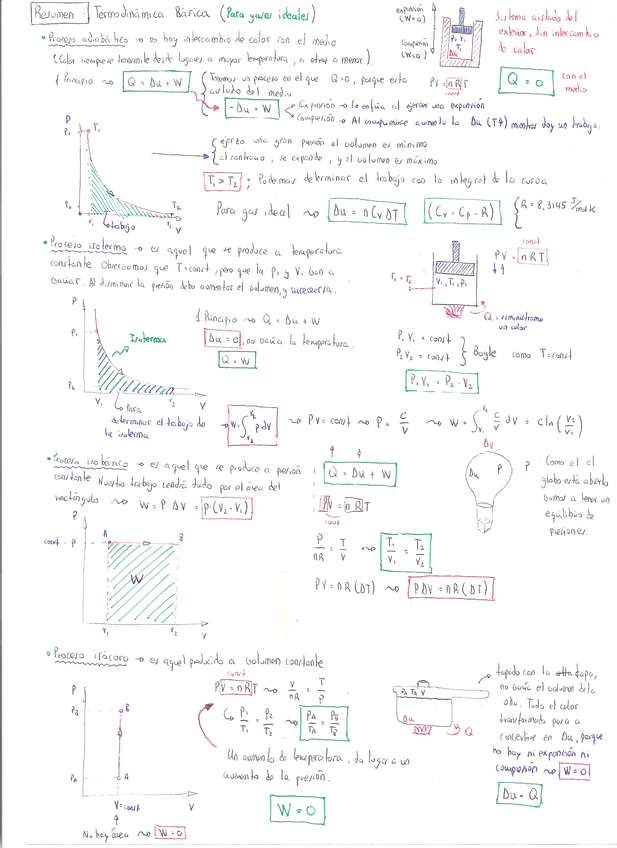 Resumen Termodinámica Básica (Para gases ideales)
expansión
(W>0)
compresión
(W<0)
P, V,
T,
Δu
Sistema aislado del
exterior, sin intercambio
de calor.
• Proceso adiabático → no hay intercambio de calor con el medio
(Calor siempre se transmite desde lugares a mayor temperatura, a otros a menor).
PV = nRT
const
Q = 0 con el
medio
1 Principio ⇝ Q = Δu + W
Tenemos un proceso en el que Q=0, porque esta
aislado del medio
-Δu = W
Expansión → Se enfría al ejercer una expansión
Compresión → Al comprimirse aumenta la Δu (T↑) mientras doy un trabajo.
P
P₁
T₁
ejerzo una gran presión el volumen es mínimo
al contrario, se expande, y el volumen es máximo
T₁ > T₂ ; Podemos determinar el trabajo con la integral de la curva
P₂
T₂
V₁
V₂
V
trabajo
Para gas ideal ⇝ Δu = n Cv ΔT (Cv = Cp - R) { R = 8,3145 J/mol K
• Proceso isotermo → es aquel que se produce a temperatura
constante. Observamos que T=const, pero que la P, y V, van a
variar. Al disminuir la presión debe aumentar el volumen, y viceversa.
T₁ = T₂
V₁, T₁, P₁
const
PV = nRT
Q, suministramos
un calor
P
P₁
Isoterma
1. Principio ⇝ Q = Δu + W
Δu = 0, no varía la temperatura.
Q = W
P₁ V₁ = const
P₂ V₂ = const
Boyle como T=const
P₁ V₁ = P₂ · V₂
P₂
V₁
V₂
V
Para
determinar el trabajo de
la isoterma
→ W = ∫ P dV ⇝ PV = const ⇝ P = C/V ⇝ W = ∫ C/V dV = C ln (V₂/V₁)
• Proceso isobárico → es aquel que se produce a presión
constante. Nuestro trabajo vendrá dado por el área del
rectángulo ⇝ W = P ΔV = P·(V₂-V₁)
Q = Δu + W
PV = nRT
const
ΔV
Δu
P
P
Como el
globo está abierto
vamos a tener un
equilibrio de
presiones.
P
const = P
A
B
W
V₁
V₂
V
P/nR = T/V ⇝ T₁/V₁ = T₂/V₂
PV = nR(ΔT) ⇝ PΔV = nR(ΔT)
• Proceso isócoro → es aquel producido a volumen constante
const
PV = nRT ⇝ V/nR = T/P
P₁/T₁ = P₂/T₂ ⇝ PA/TA = PB/TB
Un aumento de temperatura, da lugar a un
aumento de la presión.
W = 0
P
PB
B
PA
A
V=const
V
No hay área ⇝ W=0
PA TA V
Δu
Q
tapada con la tapa,
no varía el volumen de la
olla. Todo el calor
transformado pasa a
convertirse en Δu, porque
no hay ni expansión ni
compresión ⇝ W=0
Δu = Q